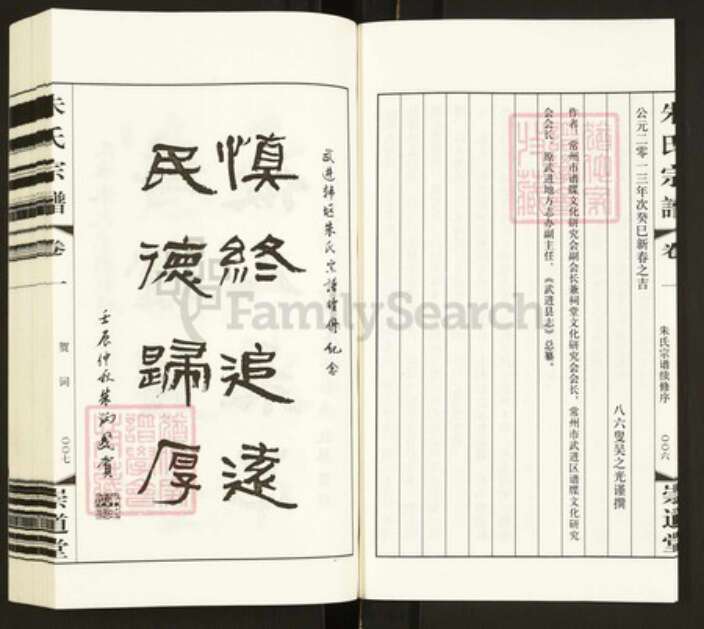 朱氏宗譜
卷一
朱氏宗谱续修序
〇〇六
崇道堂
公元二零一三年次癸巳新春之吉
八六叟吴之光谨撰
作者：常州市谱牒文化研究会副会长兼祠堂文化研究会会长，常州市武进区谱牒文化研究
会会长，原武进地方志办副主任，《武进县志》总纂。
慎終追遠
民德歸厚
朱氏宗譜
卷一
贺词
〇〇七
崇道堂
FamilySearch